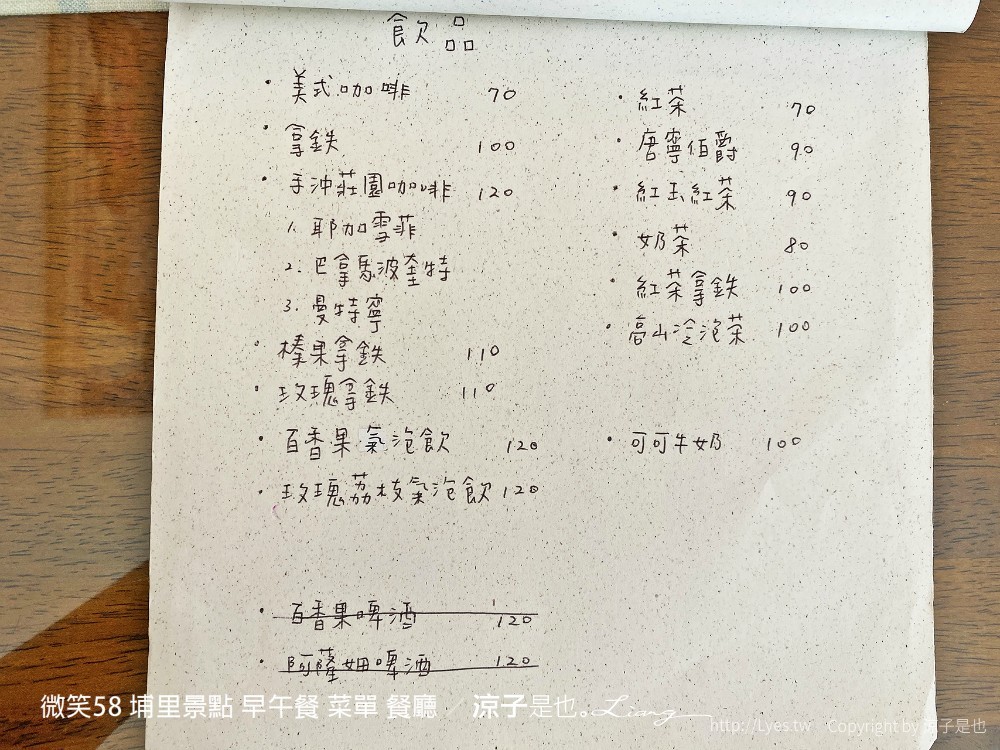 飲品
· 美式咖啡 70
· 拿鉄 100
· 手沖莊園咖啡 120
1. 耶加雪菲
2. 巴拿馬波奎特
3. 曼特寧
· 榛果拿鉄 110
· 玫瑰拿鉄 110
· 百香果氣泡飲 120
· 玫瑰荔枝氣泡飲 120
· 百香果啤酒 120
· 阿薩姆啤酒 120
· 紅茶 70
· 唐寧伯爵 90
· 紅玉紅茶 90
· 奶茶 80
· 紅茶拿鉄 100
· 高山冷泡茶 100
· 可可牛奶 100
微笑58 埔里景點 早午餐 菜單 餐廳 / 涼子是也。Liang
http://Lyes.tw Copyright by 涼子是也